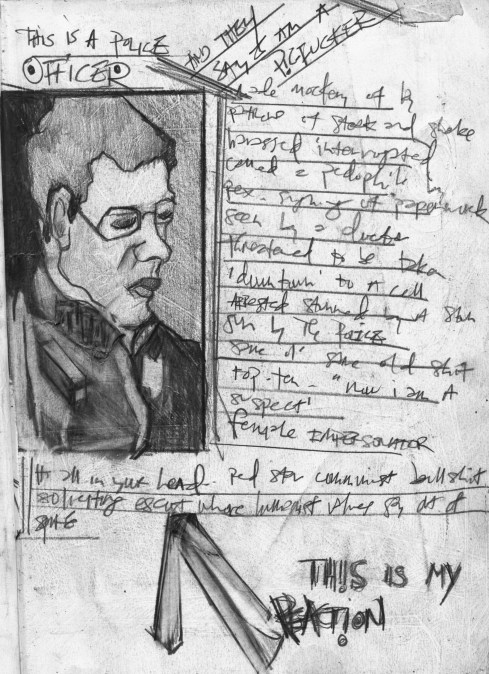 THIS IS A POLICE
OFFICER
AND THEY
SAY I AM A
PIGFUCKER
made mockery of by
patrons of steak and shake
harassed interrupted
called a pedophile by
signing of paperwork
seen by a doctor
threatened to be taken
'downtown' to a cell
ARRESTED stunned by A stun
gun by THE POLICE
same ol' same old shit
top ten - "now i am A
suspect'
female IMPERSONATOR
it all in your head - red star communist bullshit
escort where
spite
THIS IS MY
REACTION